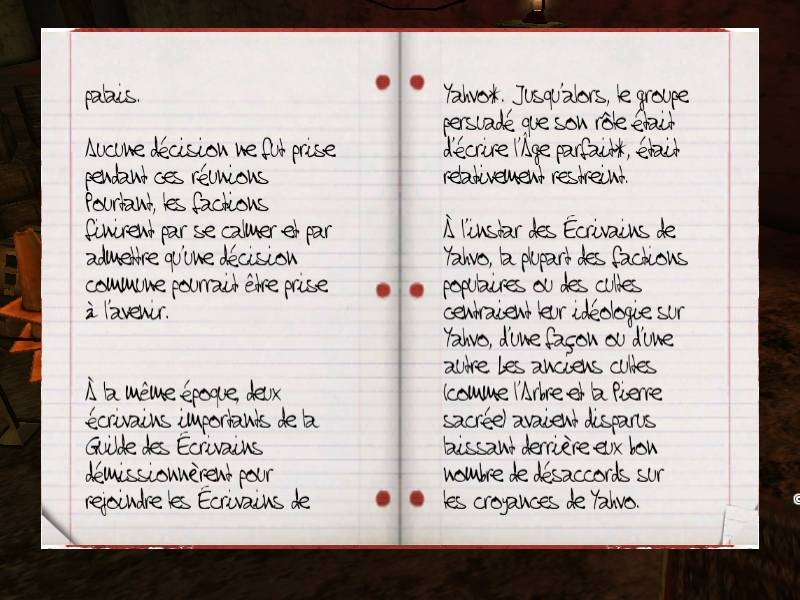 palais.
Aucune décision ne fut prise
pendant ces réunions
Pourtant, les factions
finirent par se calmer et par
admettre qu'une décision
commune pourrait être prise
à l'avenir.
À la même époque, deux
écrivains importants de la
Guilde des Écrivains
démissionnèrent pour
rejoindre les Écrivains de
Yahvo*. Jusqu'alors, le groupe
persuadé que son rôle était
d'écrire l'Âge parfait*, était
relativement restreint.
À l'instar des Écrivains de
Yahvo, la plupart des factions
populaires ou des cultes
centraient leur idéologie sur
Yahvo, d'une façon ou d'une
autre Les anciens cultes
(comme l'Arbre et la Pierre
sacrée) avaient disparus
laissant derrière eux bon
nombre de désaccords sur
les croyances de Yahvo.